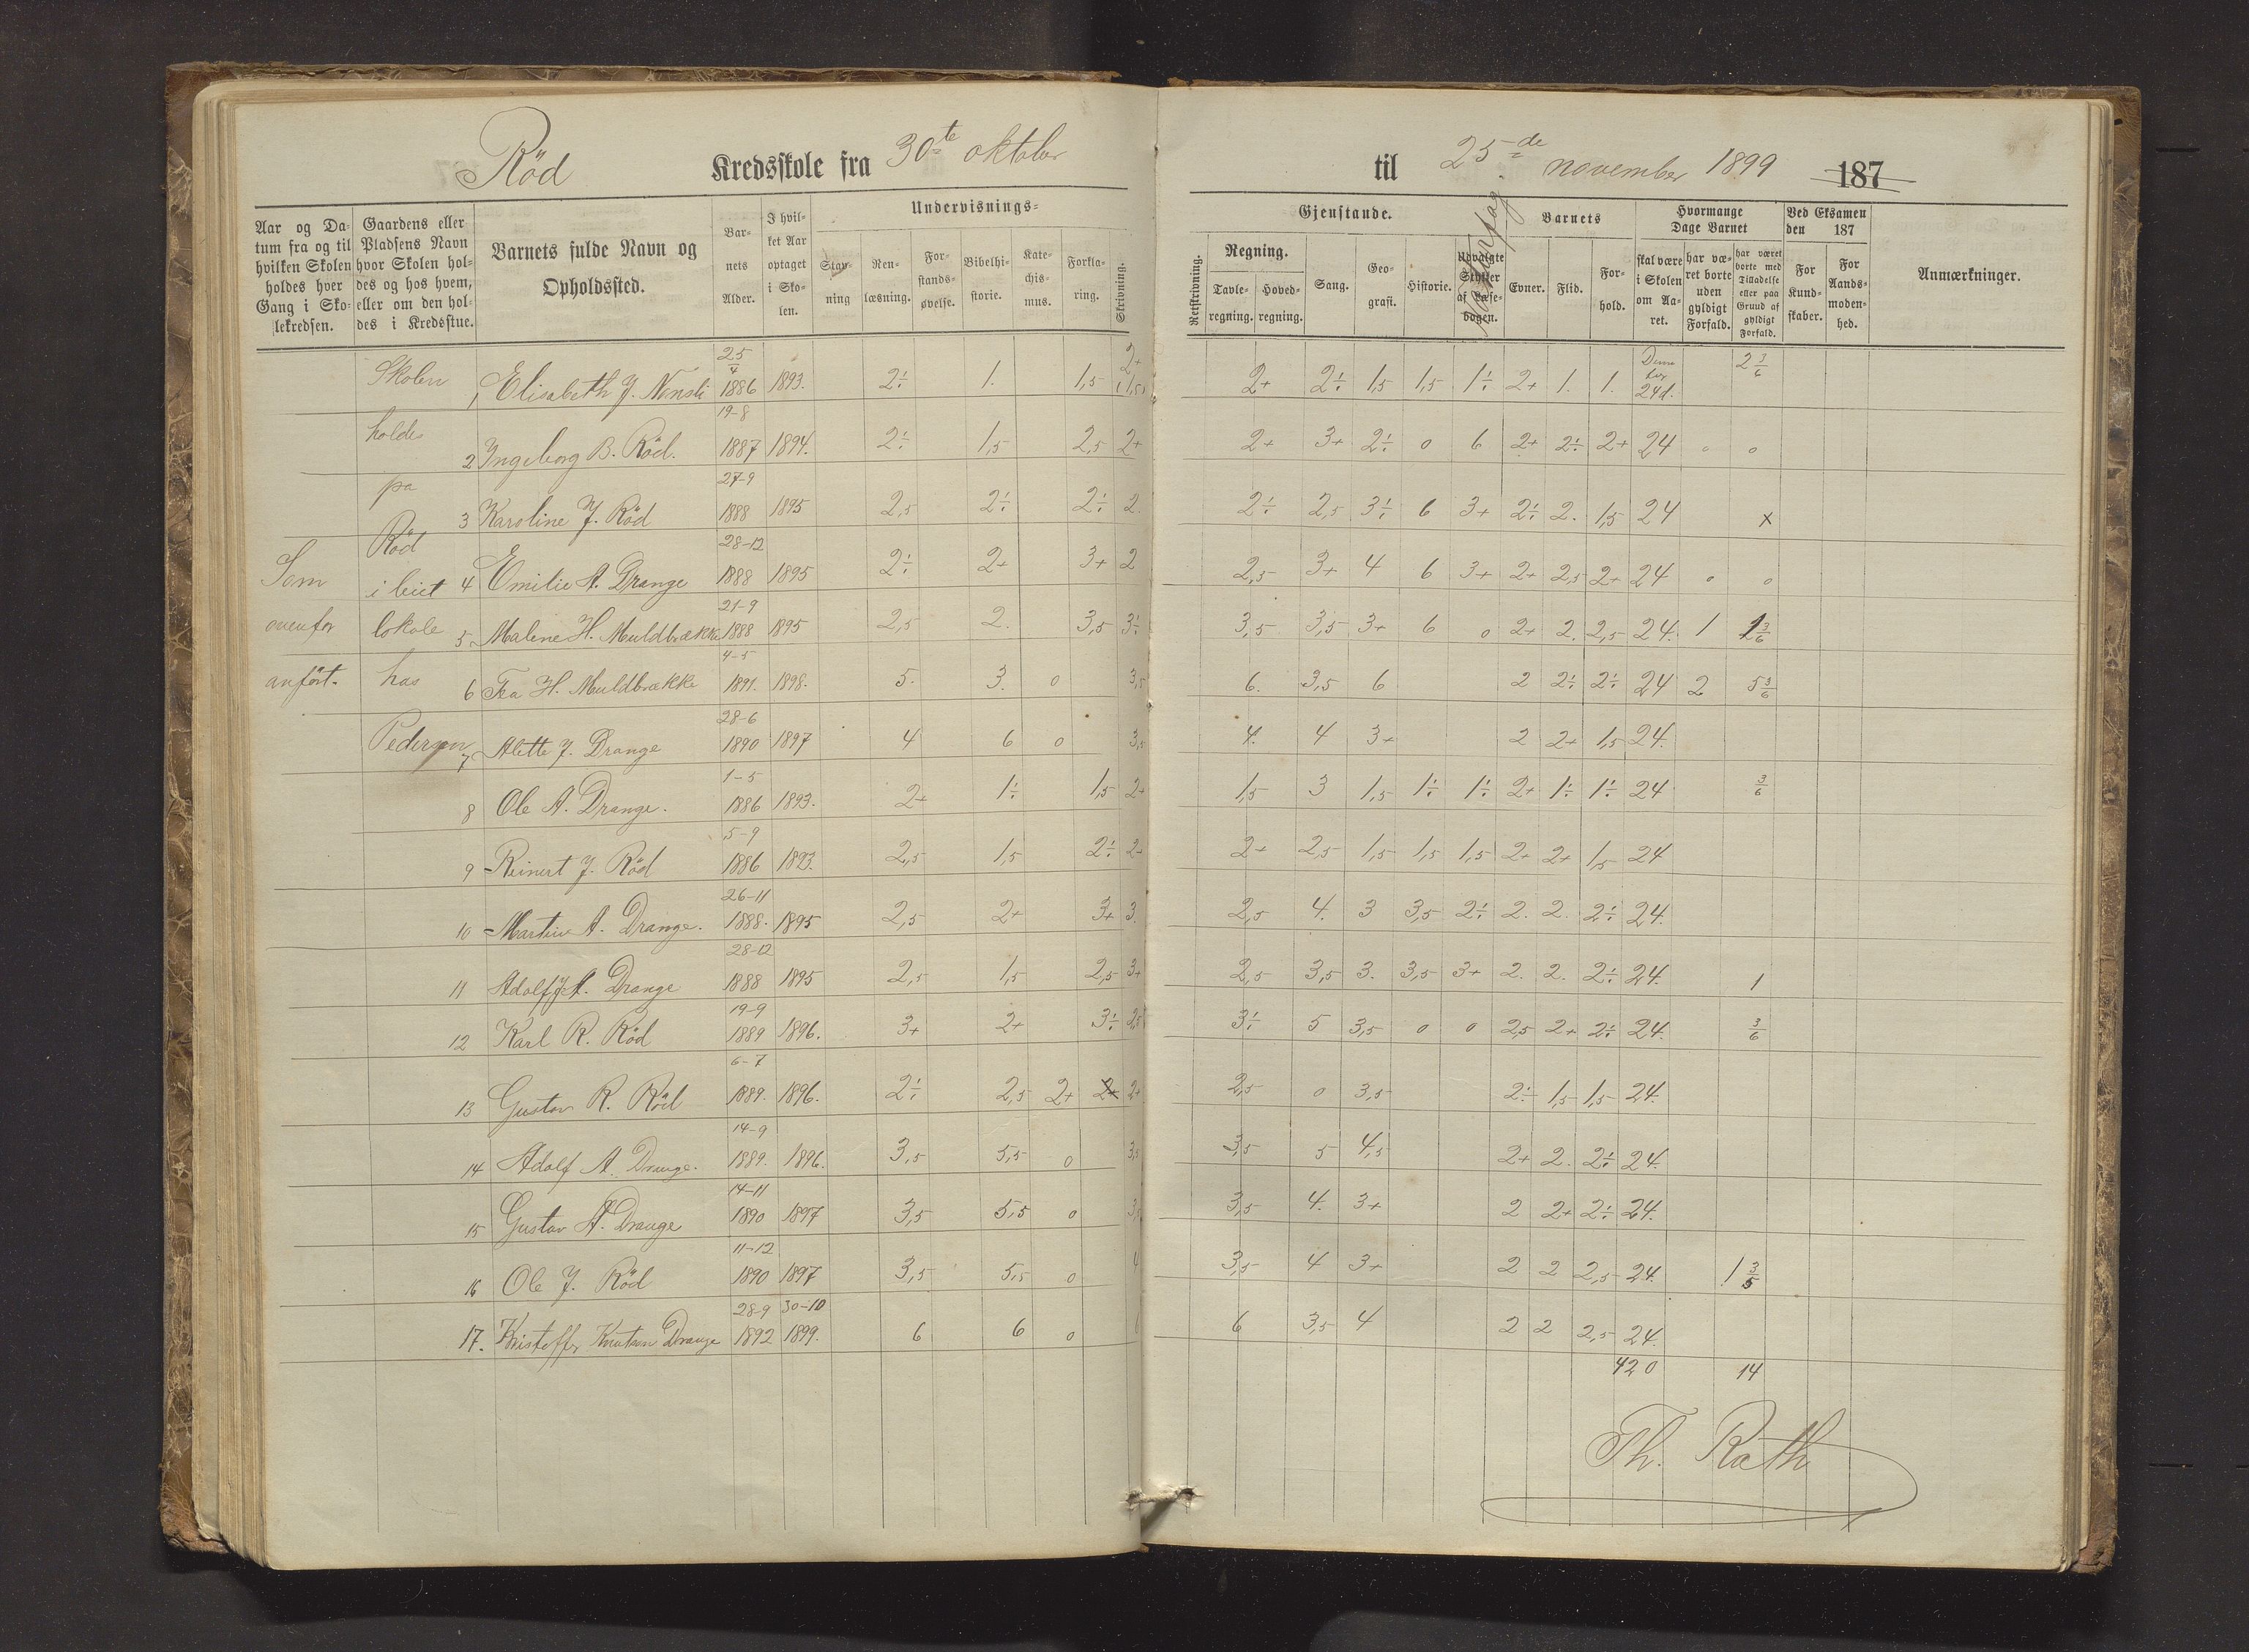 Röd Kredsskole fra 30te oktober til 25de november 1899 187
Aar og Datum fra og til hvilken Skolen holdes hver Gang i Skolekredsen.
Gaardens eller Pladsens Navn hvor Skolen holdes og hos hvem, eller om den holdes i Kredsstue.
Barnets fulde Navn og Opholdssted.
Barnets Alder.
I hvilket Aar optaget i Skolen.
Undervisnings-
Stavning
Renlæsning.
Forstandsøvelse.
Bibelhistorie.
Katechismus.
Forklaring.
Skrivning.
Gjenstande.
Retskrivning.
Regning.
Tavleregning.
Hovedregning.
Sang.
Geografi.
Historie.
Udvalgte Stykker af Læsebogen.
Barnets
Evner.
Flid.
Forhold.
Hvormange Dage Barnet
skal være i Skolen om Aaret.
har været borte uden gyldigt Forfald.
har været borte med Tilladelse eller paa Grund af gyldigt Forfald.
Ved Eksamen den 187
For Kundskaber.
For Aandsmodenhed.
Anmærkninger.
Som ovenfor anført.
Skolen holdes på Röd i leiet lokale hos Pedersen
1 Elisabeth J. 25/4 1886 1893. 2÷ 1. 1,5 2+ 2+ 2÷ 1,5 1,5 1÷ 2+ 1. 1. 24d. 2 3/6
2 Ingeborg B. Röd. 19-8 1887 1894. 2÷ 1,5 2,5 2+ 2+ 3+ 2÷ 0 6 2+ 2÷ 2+ 24 0 0
3 Karoline J. Röd 27-9 1888 1895 2,5 2÷ 2÷ 2. 2÷ 2,5 3÷ 6 3+ 2÷ 2. 1,5 24 x
4 Emilie A. Drange 28-12 1888 1895 2÷ 2+ 3+ 2 2,5 3+ 4 6 3+ 2+ 2,5 2+ 24 0 0
5 Malene H. Muldbrække 21-9 1888 1895 2,5 2. 3,5 3÷ 3,5 3,5 3+ 6 0 2+ 2. 2,5 24. 1 1 3/6
6 Tea H. Muldbrække 4-5 1891. 1898. 5. 3. 0 3,5 6. 3,5 6 2 2÷ 2÷ 24 2 5 3/6
7 Alette J. Drange 28-6 1890 1897 4 6 0 3,5 4. 4 3+ 2 2+ 1,5 24.
8 Ole A. Drange. 1-5 1886 1893. 2+ 1÷ 1,5 2+ 1,5 3 1,5 1÷ 1÷ 2+ 1÷ 1÷ 24 3/6
9 Reinert J. Röd 5-9 1886 1893. 2,5 1,5 2÷ 2+ 2+ 2,5 1,5 1,5 1,5 2+ 2+ 1,5 24
10 Martin A. Drange. 26-11 1888. 1895 2,5 2+ 3+ 3. 2,5 4. 3 3,5 2÷ 2. 2. 2÷ 24.
11 Adolf A. Drange 28-12 1888 1895 2,5 1,5 2,5 3+ 2,5 3,5 3. 3,5 3+ 2. 2. 2÷ 24. 1
12 Karl R. Röd 19-9 1889 1896. 3+ 2+ 3÷ 2,5 3÷ 5 3,5 0 0 2,5 2+ 2÷ 24. 3/6
13 Gustav R. Röd 6-7 1889. 1896. 2÷ 2,5 2+ 2+ 2+ 2,5 0 3,5 2÷ 1,5 1,5 24.
14 Adolf A. Drange. 14-9 1889. 1896. 3,5 5,5 0 3,5 3,5 5 4,5 2+ 2. 2÷ 24.
15 Gustav A. Drange 14-11 1890 1897 3,5 5,5 0 3,5 3,5 4. 3+ 2 2+ 2÷ 24.
16 Ole J. Röd 11-12 1890 1897 3,5 5,5 0 4 3,5 4 3+ 2 2 2,5 24. 1 3/5
17. Kristoffer Knutsen Drange 28-9 1892 30-10 1899. 6 6 0 6 6 3,5 4 2 2 2,5 24.
420 14
Th. Rath